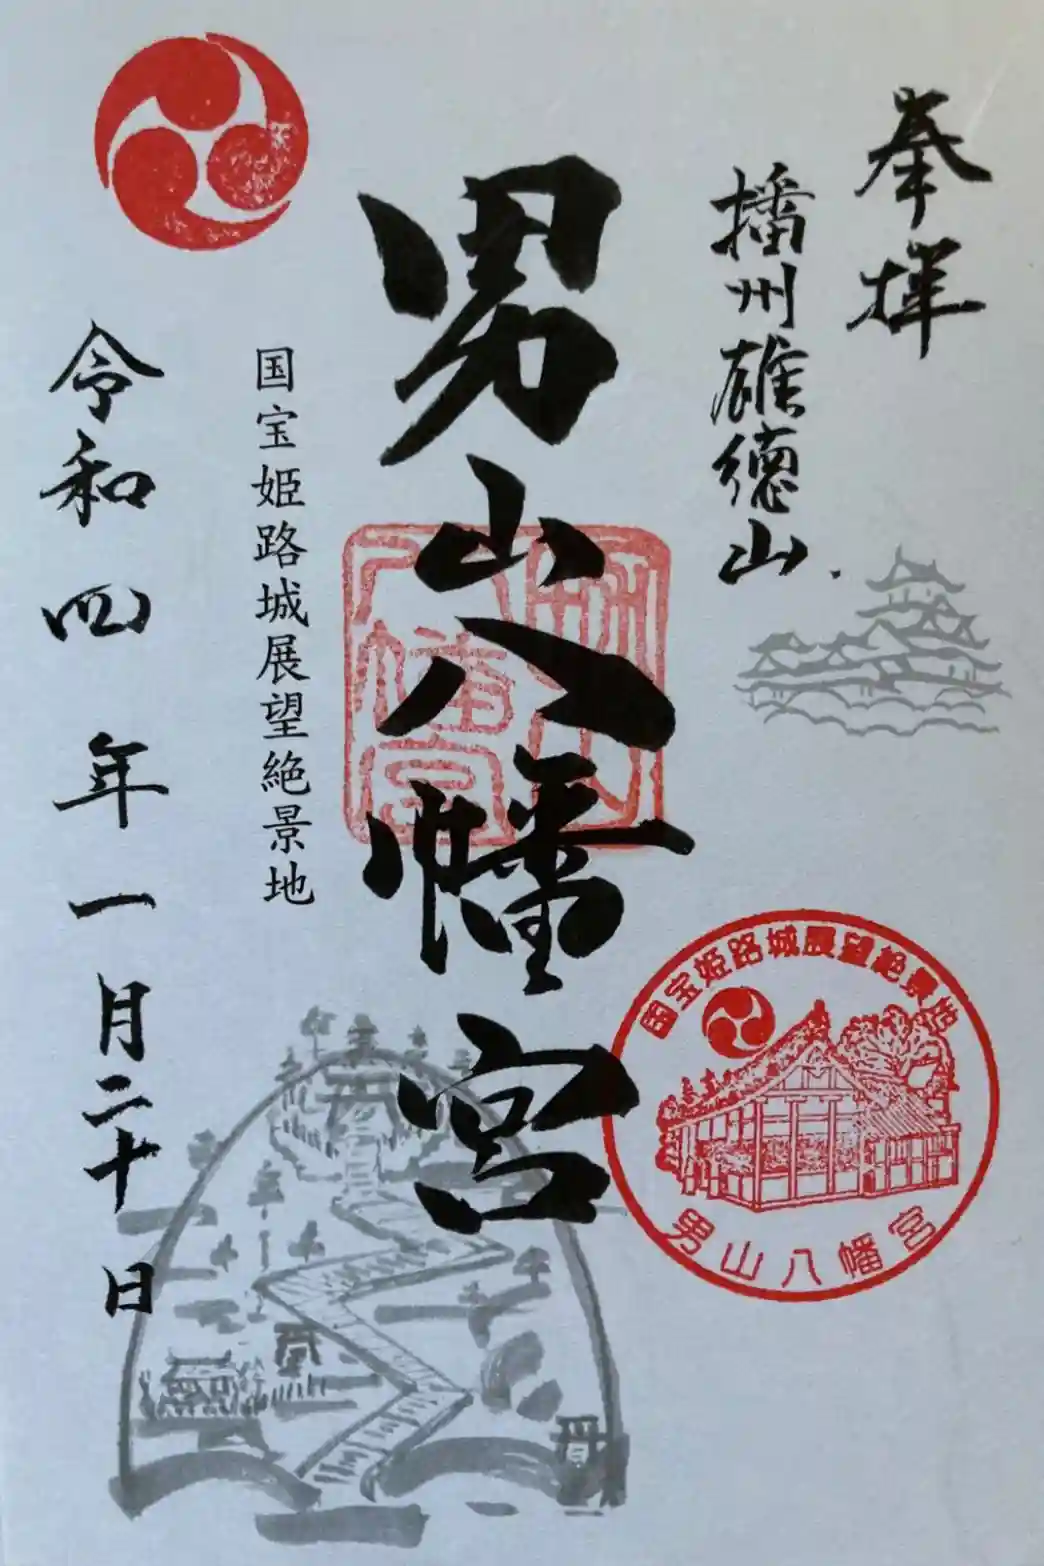 奉拝
播州雄徳山
男山八幡宮
男山
八幡宮
国宝姫路城展望絶景地
令和四年一月二十日
国宝姫路城展望絶景地
男山八幡宮